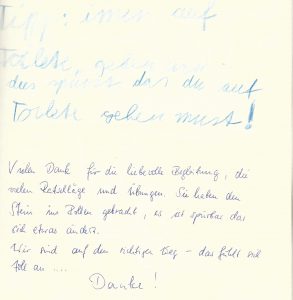 Tipp: immer auf
Toilette gehen wenn
du spürst das du auf
Toilete gehen must!
Vielen Dank für die liebevolle Begleitung, die
vielen Ratschläge und Übungen. Sie haben den
Stein ins Rollen gebracht, es ist spürbar das
sich etwas ändert.
Wir sind auf dem richtigen Weg – das fühlt sich
toll an ....
Danke!